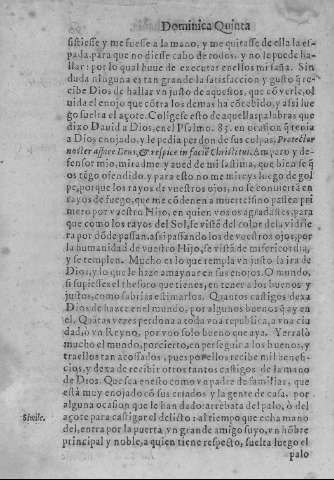 Dominica Quinta
sistiesse y me fuesse a la mano, y me quitasse de ella la es-
pada, para que no diesse cabo de todos, y no le pude ha-
llar: por lo qual huue de executar en ellos mi saña. Sin
duda ninguna es tan grande la satisfaccion y gusto q̃ re-
cibe Dios de hallar vn justo de aquestos, que cõ verle, ol
uida el enojo que cõtra los demas ha cõcebido, y assi lue
go suelta el açote. Coligese esto de aquellas palabras que
dixo Dauid a Dios, en el Psalmo. 83. en ocasion q̃ tenia
a Dios enojado, y le pedia perdon de sus culpas, Protector
noster aspice Deus, & respice in faciẽ Christi tui. Amparo y de-
fensor mio, miradme y aued de mi lastima, que bien se q̃
os tẽgo ofendido, y para esto no me mireys luego de gol
pe, porque los rayos de vuestros ojos, no se conuiertã en
rayos de fuego, que me cõdenen a muerte: sino passe n pri
mero por vuestro Hijo, en quien vos os agradastes, para
que como los rayos del Sol, se vistẽ del color del, vidrie
ra por dõde passan, assi passando los de vuestros ojos, por
la humanidad de vuestro Hijo, se vistã de misericordia,
y se templen. Mucho es lo que templa vn justo la ira de
Dios, y lo que le haze amaynar en sus enojos. O mundo,
si supiesses el thesoro que tienes, en tener a los buenos y
justos, como sabrias estimarlos. Quantos castigos dexa
Dios de hazer en el mundo, por algunos buenos q̃ ay en
el. Quãtas vezes perdona a toda vna republica, a vna ciu
dad, o vn Reyno, por vno solo bueno que aya. Yerralo
mucho el mundo, por cierto, en perseguir a los buenos, y
traellos tan acossados, pues por ellos recibe mil benefi-
cios, y dexa de recibir otros tantos castigos de la mano
de Dios. Que sea en esto como vn padre de familias, que
està muy enojado cõ sus criados y la gente de casa, por
alguna ocasion que le han dado: arrebata del palo, ò del
Simile. açote para castigar el delicto: al tiempo que echa mano
del, entra por la puerta vn grande amigo suyo, vn hõbre
principal y noble, a quien tiene respecto, suelta luego el
palo